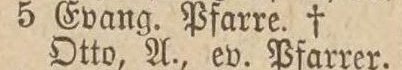 5 Evang. Pfarre. †
Otto, A., ev. Pfarrer.